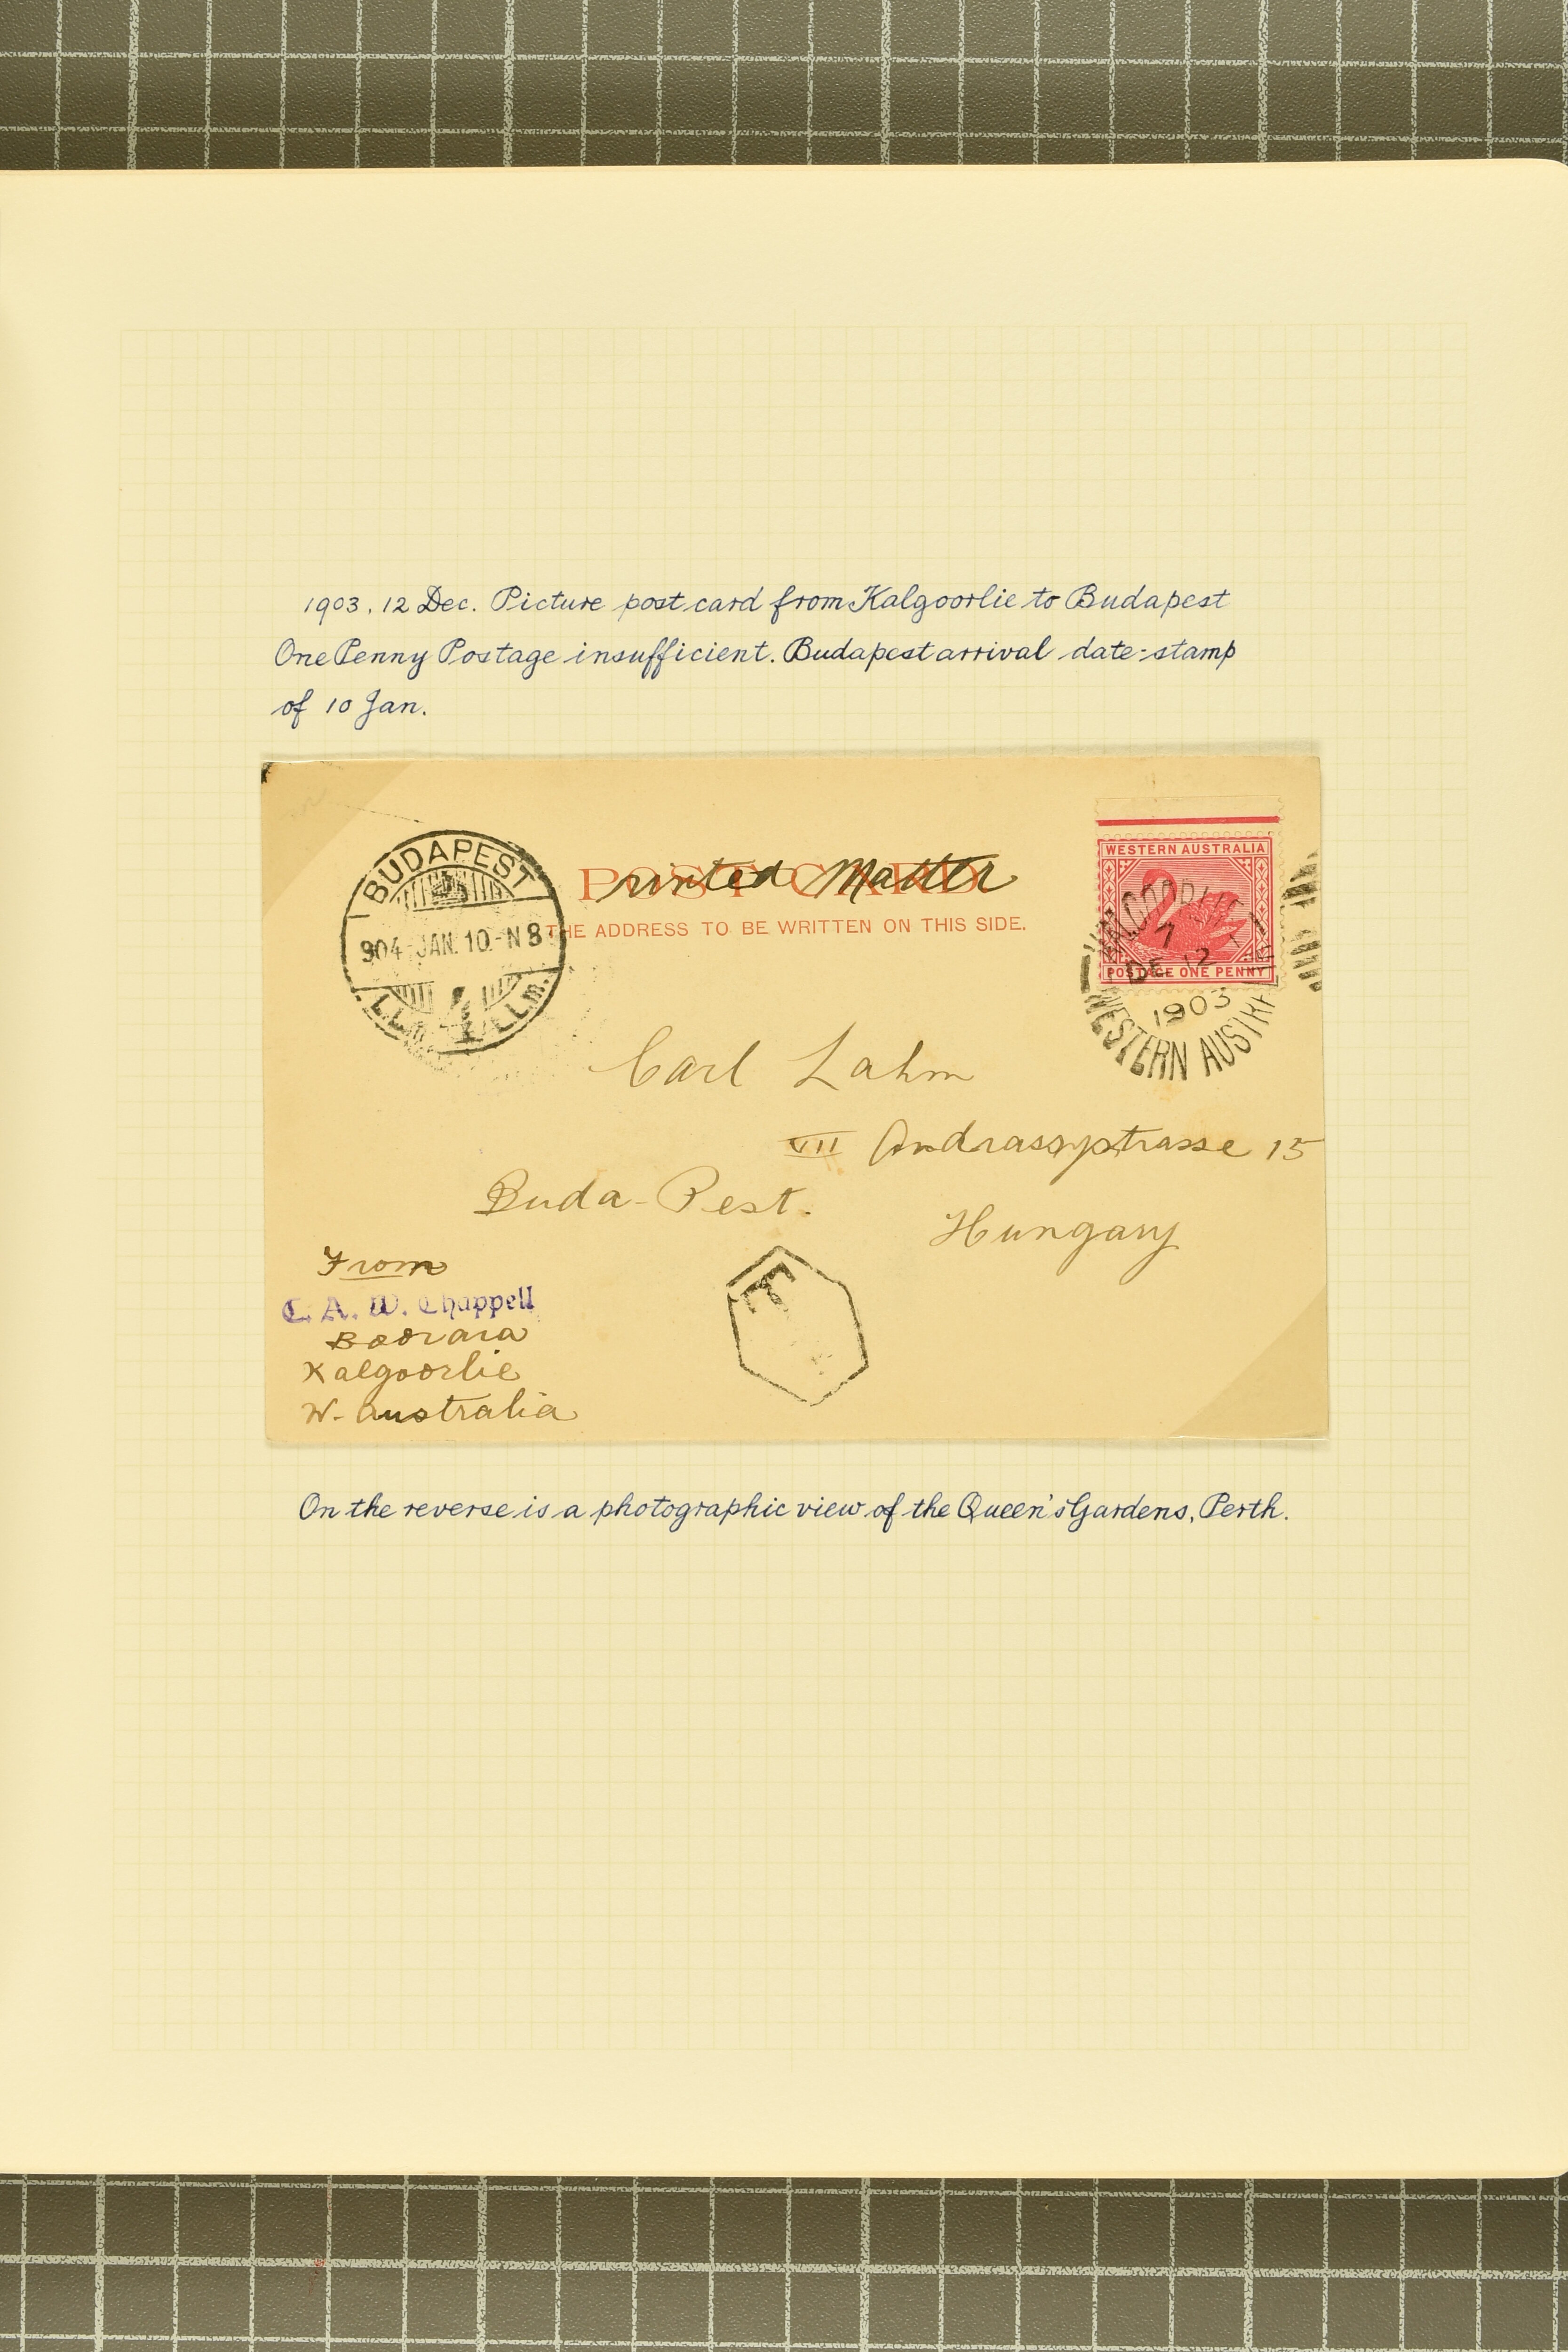 1903. 12 Dec. Picture post card from Kalgoorlie to Budapest
One Penny Postage insufficient. Budapest arrival date-stamp
of 10 Jan.
BUDAPEST
904 JAN. 10.-N 8
Printed Matter
POST CARD
THE ADDRESS TO BE WRITTEN ON THIS SIDE.
WESTERN AUSTRALIA
POSTAGE ONE PENNY
KALGOORLIE
7
DE 12
1903
WESTERN AUSTRA
Carl Lahm
VII Andrassystrasse 15
Buda-Pest.
Hungary
From
C. A. W. Chappell
Boorara
Kalgoorlie
W. Australia
T
On the reverse is a photographic view of the Queen's Gardens, Perth.